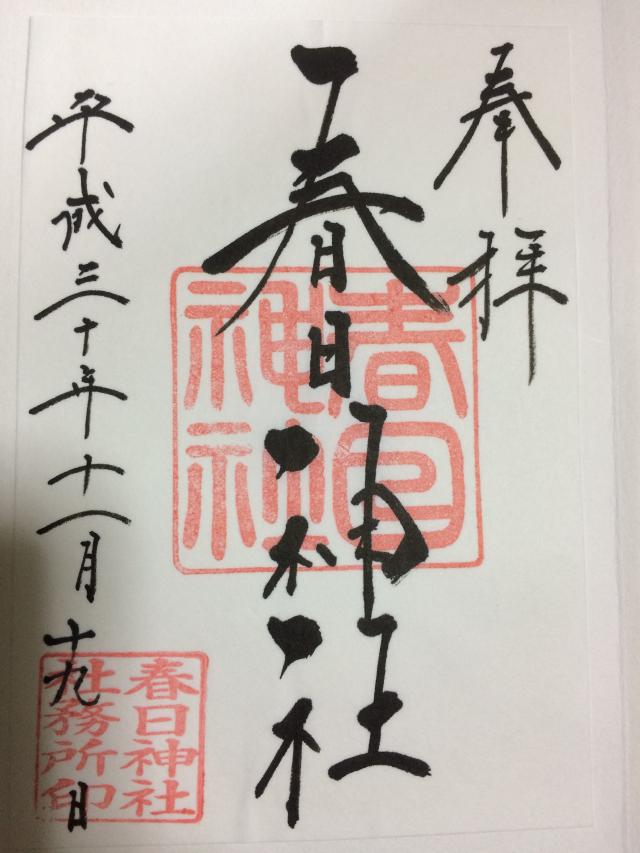 奉拝
春日神社
春日
神社
平成三十年十一月十九日
春日神社
社務所印